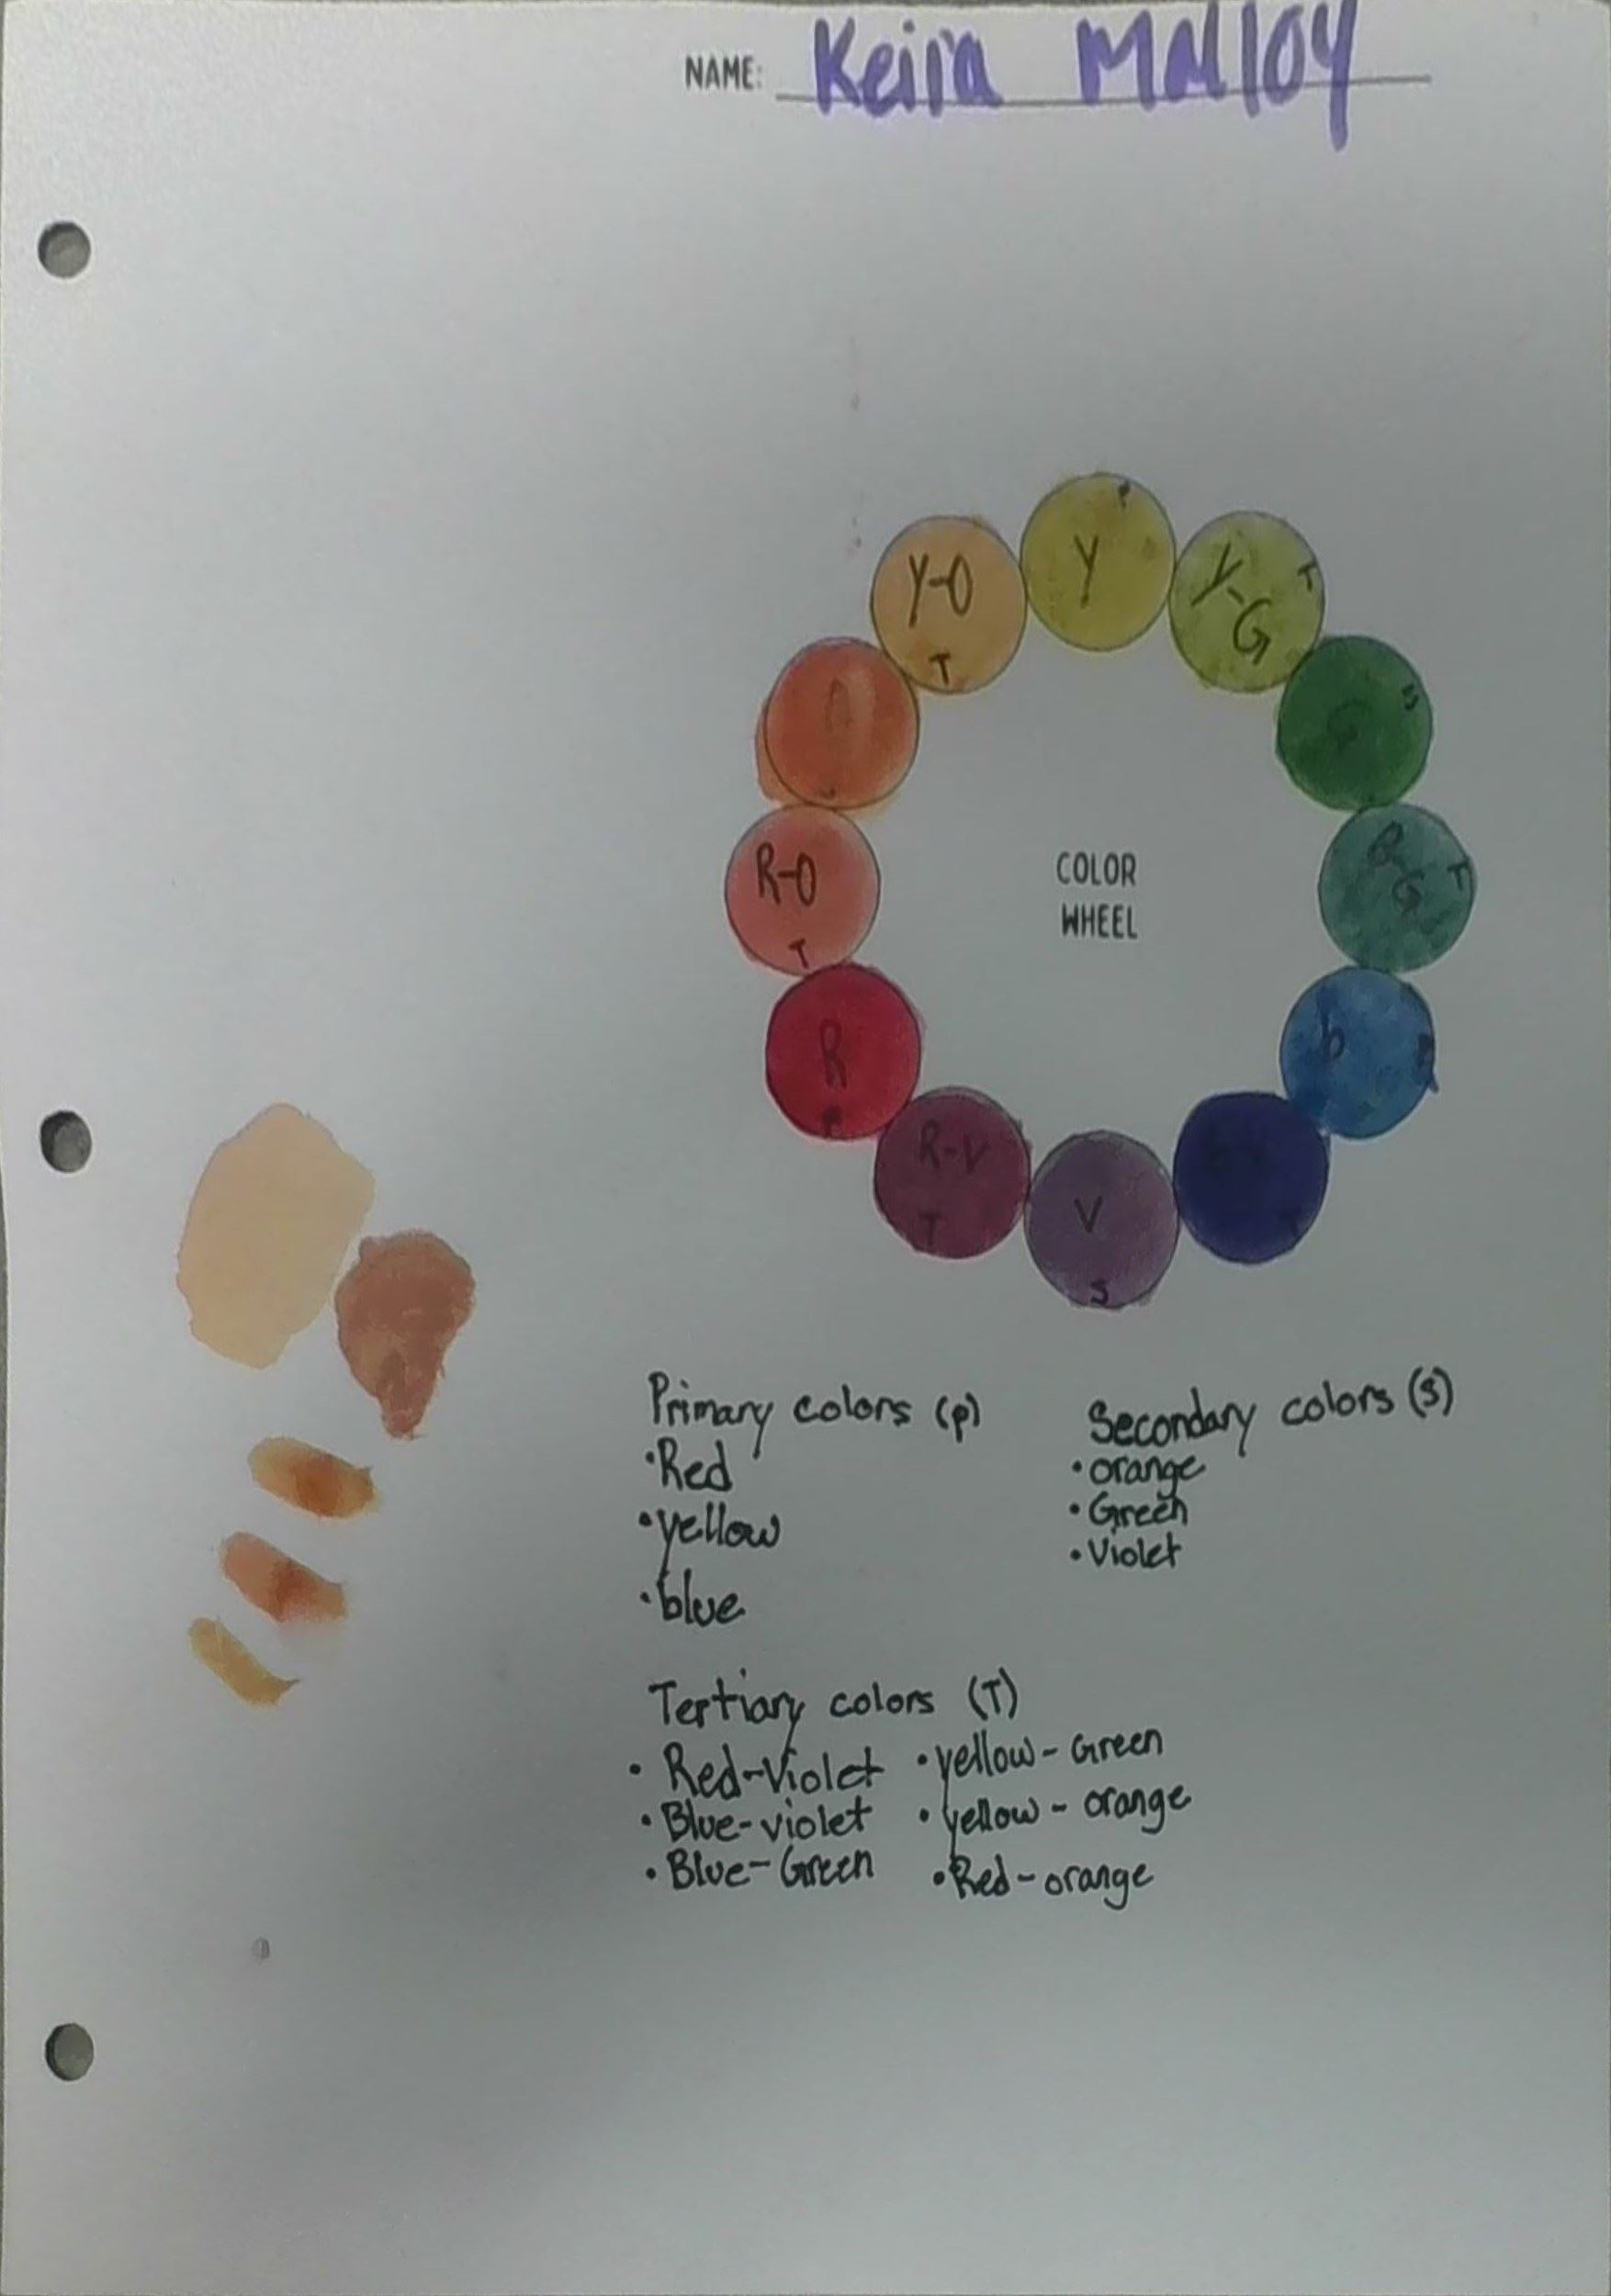 NAME: Keira Malloy
Y P
Y-O T
Y-G T
O
G S
R-O T
B-G T
COLOR
WHEEL
R P
b P
R-V T
V S
T
Primary colors (p)
•Red
•yellow
•blue
Secondary colors (S)
•orange
•Green
•Violet
Tertiary colors (T)
•Red-Violet
•Blue-violet
•Blue-Green
•yellow-Green
•yellow-orange
•Red-orange